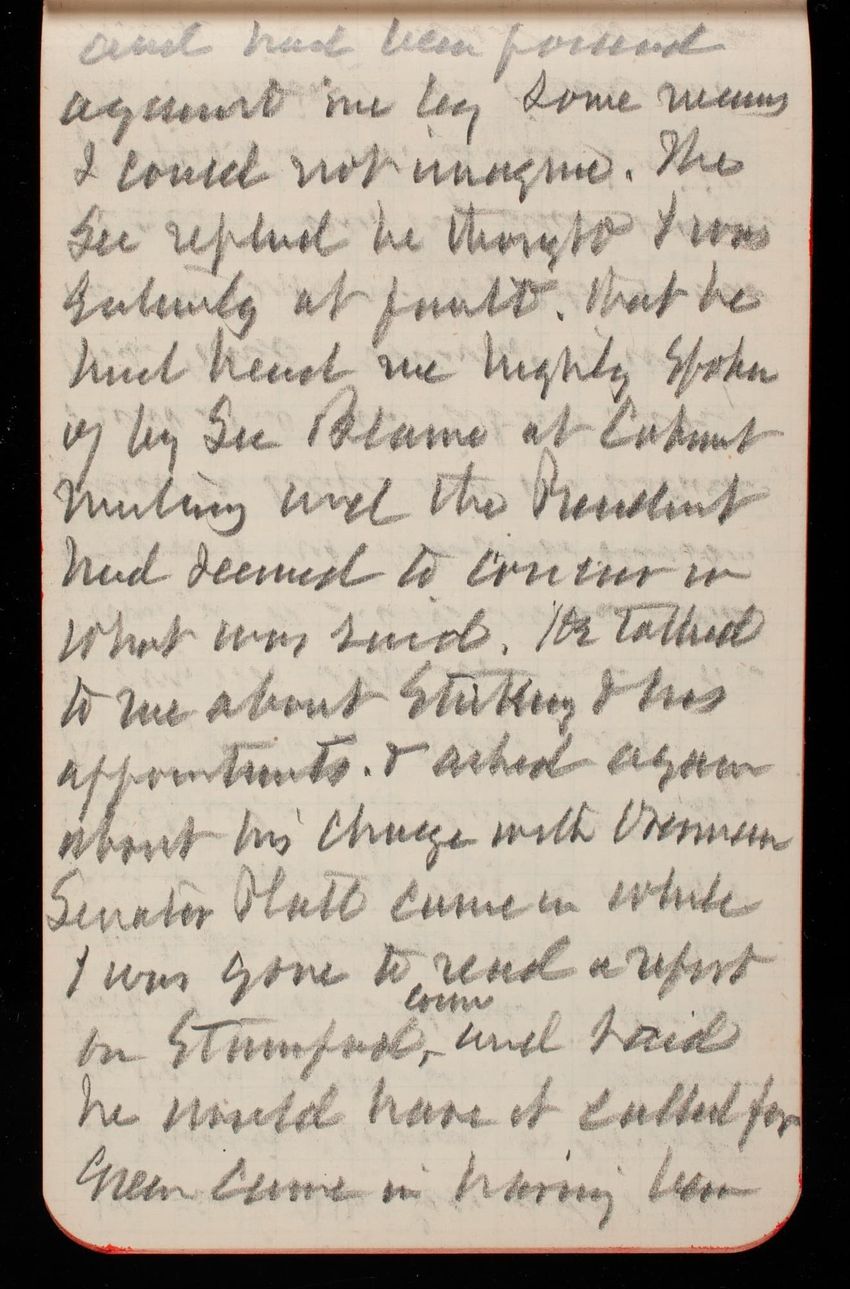 and had been poisoned
against me by some means
I could not imagine. The
Sec replied he thought I was
Entirely at fault. that he
had heard me highly spoken
of by Sec Blaine at Cabinet
meeting and the President
had seemed to concur in
what was said. He talked
to me about & his
appointments. & asked again
about his charge with
Senator Platt came in while
I was gone to read a report
on Stamford, Conn and said
he would have it called for
Green came in having been